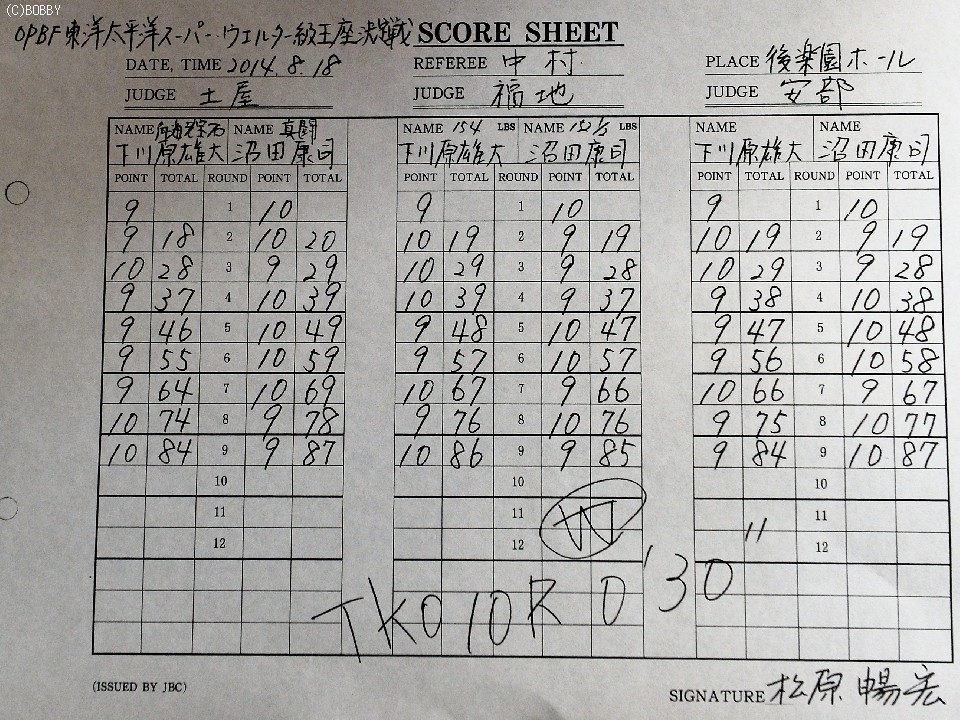 (C)BOBBY
OPBF東洋太平洋スーパーウェルター級王座決定戦 SCORE SHEET
DATE, TIME 2014.8.18 REFEREE 中村 PLACE 後楽園ホール
JUDGE 土屋 JUDGE 福地 JUDGE 安部
NAME 角海老宝石 NAME 真闘 NAME 154 LBS NAME 152 1/2 LBS NAME NAME
下川原雄大 沼田康司 下川原雄大 沼田康司 下川原雄大 沼田康司
POINT TOTAL ROUND POINT TOTAL POINT TOTAL ROUND POINT TOTAL POINT TOTAL ROUND POINT TOTAL
9 1 10 9 1 10 9 1 10
9 18 2 10 20 10 19 2 9 19 10 19 2 9 19
10 28 3 9 29 10 29 3 9 28 10 29 3 9 28
9 37 4 10 39 10 39 4 9 37 9 38 4 10 38
9 46 5 10 49 9 48 5 10 47 9 47 5 10 48
9 55 6 10 59 9 57 6 10 57 9 56 6 10 58
9 64 7 10 69 10 67 7 9 66 10 66 7 9 67
10 74 8 9 78 9 76 8 10 76 9 75 8 10 77
10 84 9 9 87 10 86 9 9 85 9 84 9 10 87
10 10 10
11 11 W 11
12 12 〃 12
TKO 10R 0'30
(ISSUED BY JBC) SIGNATURE 松原暢宏